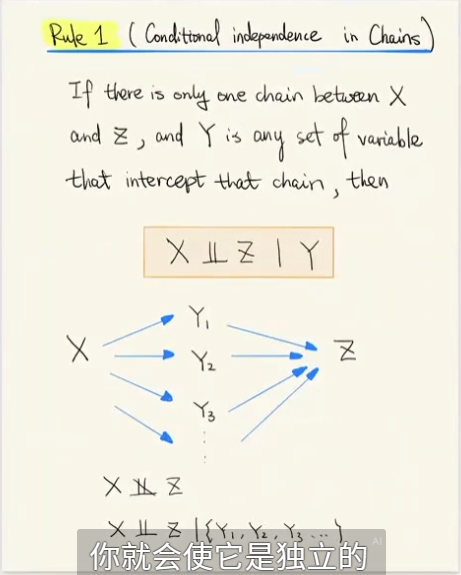 Rule 1 (Conditional independence in Chains)
If there is only one chain between X
and Z, and Y is any set of variable
that intercept that chain, then
X ⫫ Z | Y
Y₁
X Y₂ Z
Y₃
⋮
X ⫫̸ Z
X ⫫ Z | {Y₁, Y₂, Y₃ ... }
AI
你就会使它是独立的